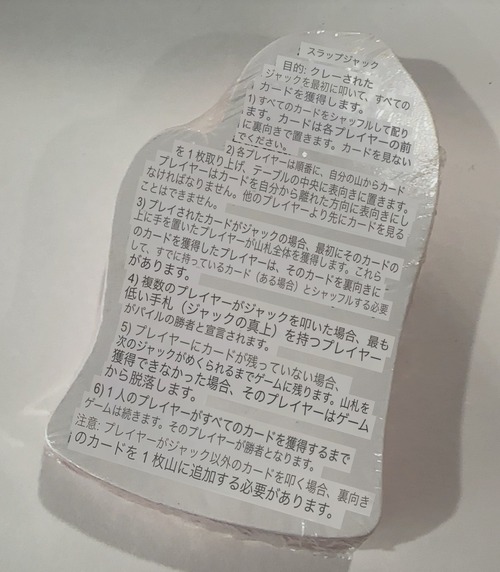 スラップジャック
目的: クレーされた
ジャックを最初に叩いて、すべての
カードを獲得します。
1) すべてのカードをシャッフルして配り
ます。カードは各プレイヤーの前
に裏向きで置きます。カードを見ない
でください。
2) 各プレイヤーは順番に、自分の山からカード
を 1 枚取り上げ、テーブルの中央に表向きに置きます。
プレイヤーはカードを自分から離れた方向に表向きにし
なければなりません。他のプレイヤーより先にカードを見る
ことはできません。
3) プレイされたカードがジャックの場合、最初にそのカードの
上に手を置いたプレイヤーが山札全体を獲得します。これら
のカードを獲得したプレイヤーは、そのカードを裏向きに
して、すでに持っているカード（ある場合）とシャッフルする必要
があります。
4) 複数のプレイヤーがジャックを叩いた場合、最も
低い手札（ジャックの真上）を持つプレイヤー
がパイルの勝者と宣言されます。
5) プレイヤーにカードが残っていない場合、
次のジャックがめくられるまでゲームに残ります。山札を
獲得できなかった場合、そのプレイヤーはゲーム
から脱落します。
6) 1 人のプレイヤーがすべてのカードを獲得するまで
ゲームは続きます。そのプレイヤーが勝者となります。
注意: プレイヤーがジャック以外のカードを叩く場合、裏向き
のカードを 1 枚山に追加する必要があります。